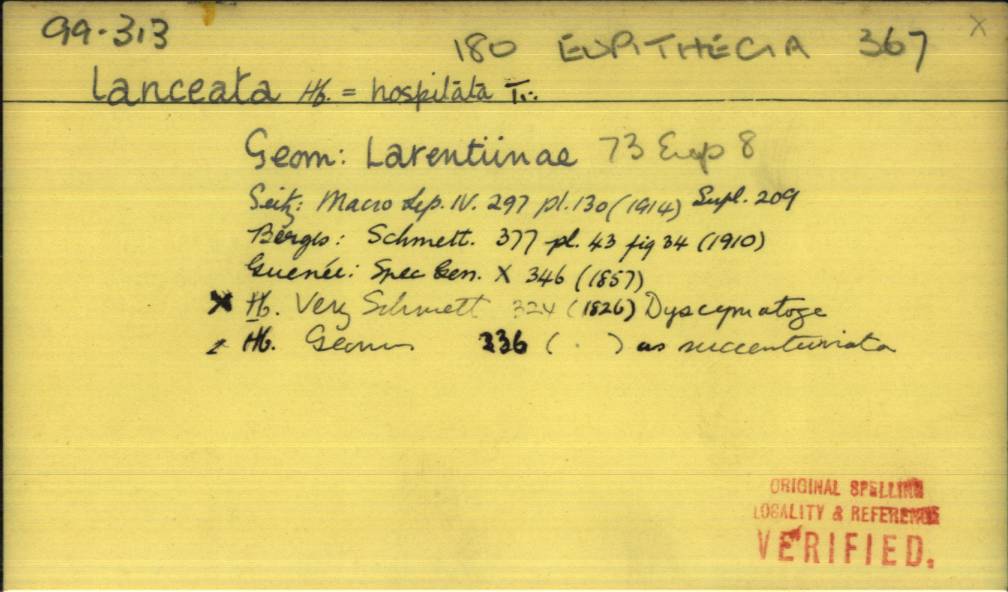 99-313 X
180 EUPITHECIA 367
Lanceata Hb. = hospitāta Tr.
Geom: Larentiinae 73 Eup 8
Seitz: Macro Lep. IV. 297 pl. 130 (1914) Supl. 209
Berges: Schmett. 377 pl. 43 fig 34 (1910)
Guenée: Spec Gen. X 346 (1857)
X Hb. Verz Schmett 324 (1826) Dyscymatoge
Hb. Geom 336 ( . ) as succenturiata
ORIGINAL SPELLING
LOCALITY & REFERENCE
VERIFIED.